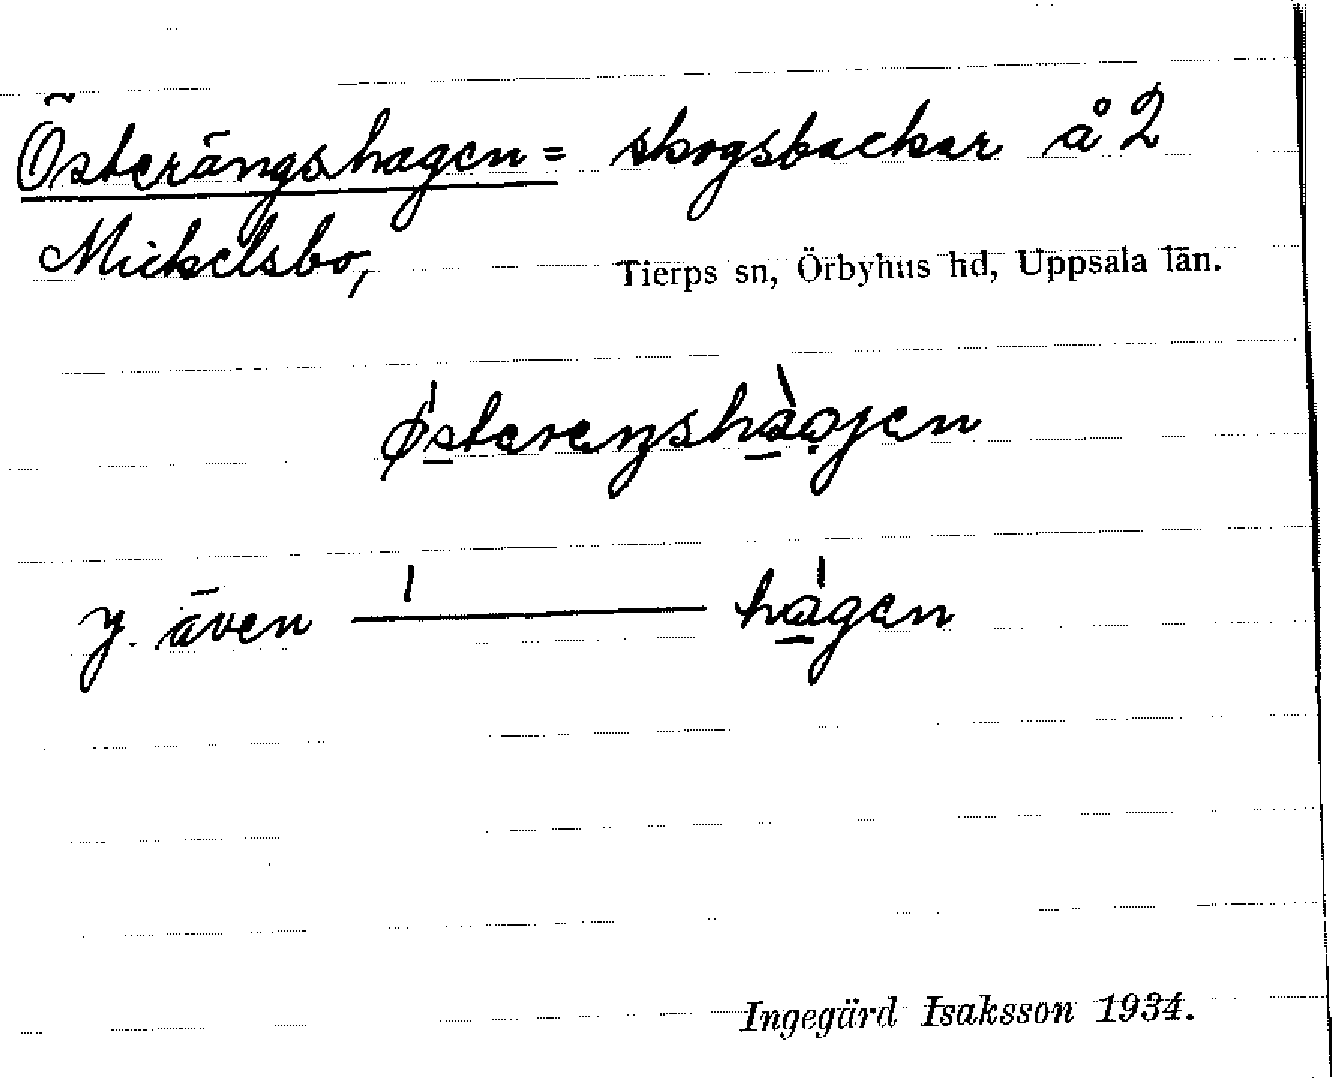 Österängshagen = skogsbackar å 2
Mickelsbo,
Tierps sn, Örbyhus hd, Uppsala län.
y. även ——— hagen
Ingegärd Isaksson 1934.